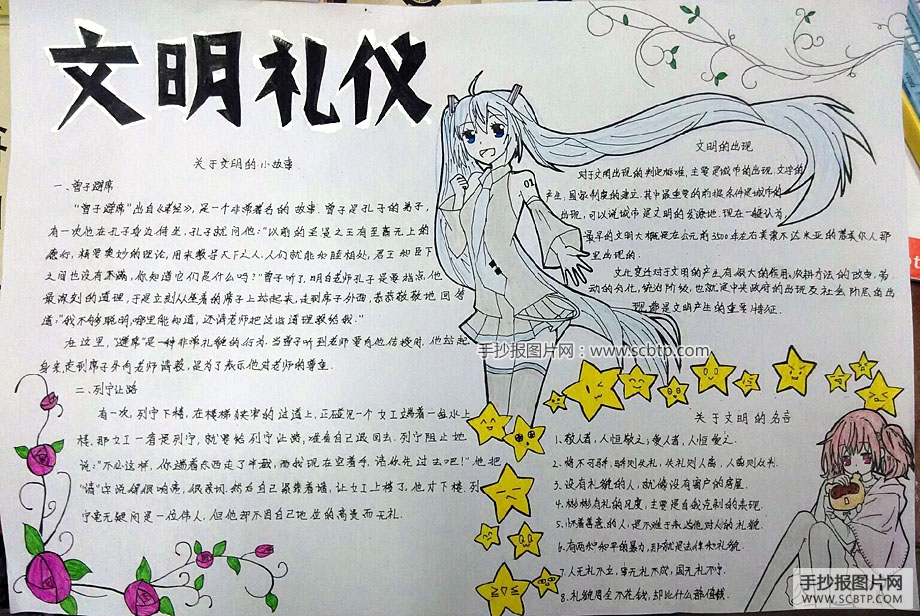 文明礼仪
关于文明的小故事
一、曾子避席
“曾子避席”出自《孝经》,是一个非常著名的故事.曾子是孔子的弟子,
有一次他在孔子身边侍坐,孔子就问他:“以前的圣贤之王有至高无上的
德行,精要奥妙的理论,用来教导天下之人,人们就能和睦相处,君王和臣下
之间也没有不满,你知道它们是什么吗?”曾子听了,明白老师孔子是要指点他
最深刻的道理,于是立刻从坐着的席子上站起来,走到席子外面,恭恭敬敬地回答
道:“我不够聪明,哪里能知道,还请老师把这些道理教给我.”
在这里,“避席”是一种非常礼貌的行为,当曾子听到老师要向他传授时,他站起
身来,走到席子外向老师请教,是为了表示他对老师的尊重.
二.列宁让路
有一次,列宁下楼,在楼梯狭窄的过道上,正碰见一个女工端着一盆水上
楼.那女工一看是列宁,就要给列宁让路,准备自己退回去.列宁阻止她
说:“不必这样,你端着东西走了半截,而我现在空着手,请你先过去吧!”他把
“请”字说得很响亮,很亲切.然后自己紧靠着墙,让女工上楼了,他才下楼.列
宁毫无疑问是一位伟人,但他却不因自己地位的高贵而无礼.
01
文明的出现
对于文明出现的判定标准,主要是城市的出现,文字的
产生,国家制度的建立.其中最重要的前提条件是城市的
出现,可以说城市是文明的发源地.现在一般认为,
最早的文明大概是在公元前3500年左右美索不达米亚的苏美尔人那
里出现的.
文化变迁对于文明的产生有很大的作用,农耕方法的改变,劳
动的分化,统治阶级,也就是中央政府的出现及社会阶层的出
现,都是文明产生的重要特征.
手抄报图片网:www.scbtp.com
关于文明的名言
1.敬人者,人恒敬之;爱人者,人恒爱之.
2.骄不可骄,骄则失礼,失礼则人离,人离则众叛.
3.没有礼貌的人,就像没有窗户的房屋.
4.彬彬有礼的风度,主要是自我克制的表现.
5.怀着善意的人,是不难于表达他对人的礼貌.
6.有两种和平的暴力,那就是法律和礼貌.
7.人无礼不立,事无礼不成,国无礼不宁.
8.礼貌周全不花钱,却比什么都值钱.
手抄报图片网
WWW.SCBTP.COM